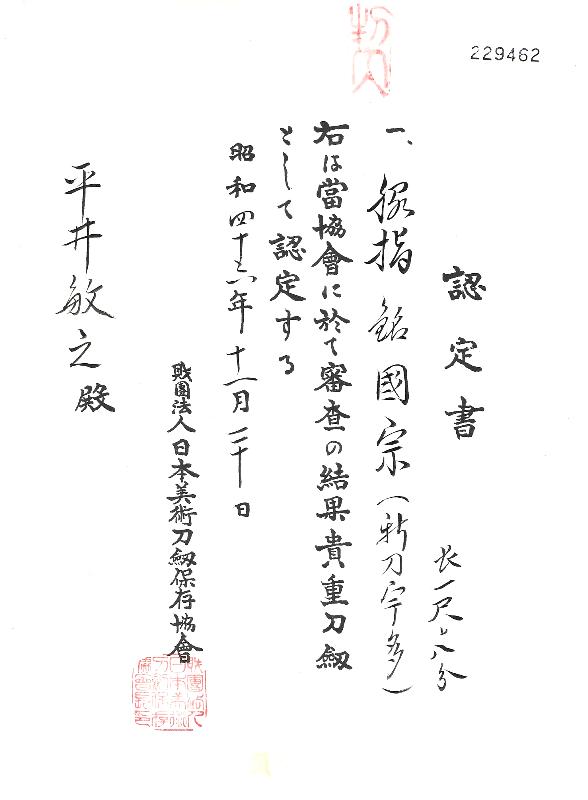 229462
認定書
長一尺と八分
一、脇指 銘 國宗（新刀宇多）
右は當協會に於て審査の結果貴重刀劔
として認定する
昭和四十六年十一月二十日
財團法人日本美術刀劔保存協會
平井敏之殿